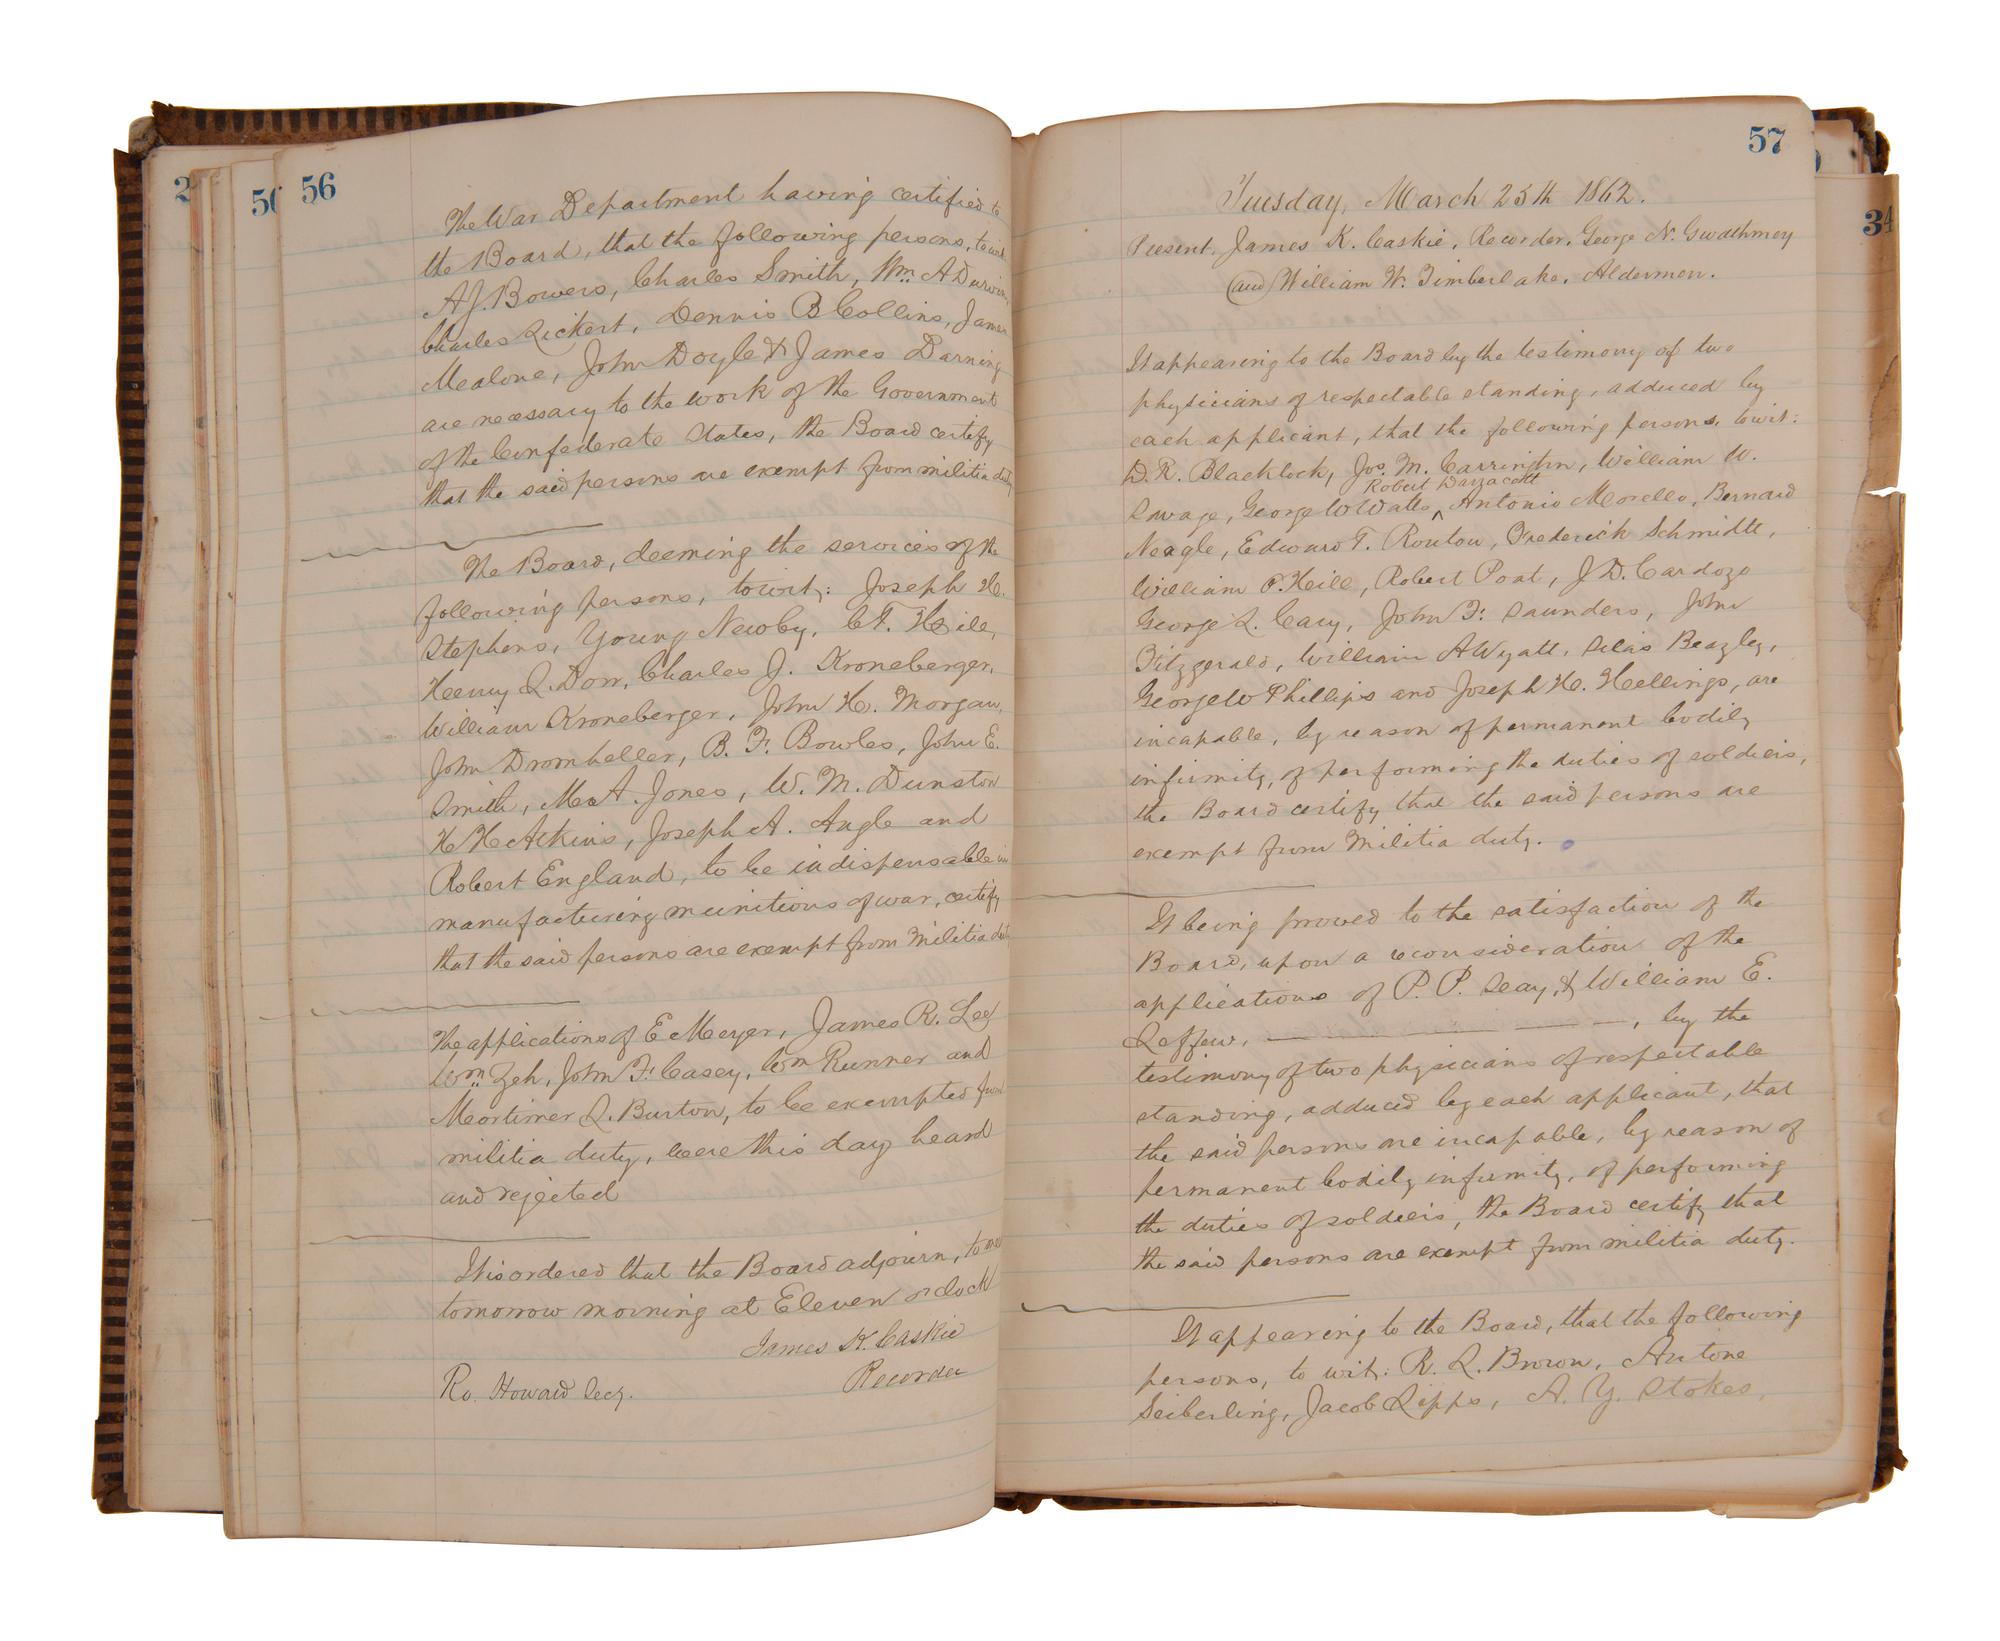 2
50
56
The War Department having certified to
the Board, that the following persons, to wit
A J. Bowers, Charles Smith, Wm. A Durvin,
Charles Rickert, Dennis B Collins, James
Mealone, John Doyle & James Darning
are necessary to the work of the Government
of the Confederate States, the Board certify
that the said persons are exempt from militia duty
The Board, deeming the services of the
following persons, towit: Joseph H.
Stephens, Young Newby, C F. Heile,
Henry L. Dorr, Charles J. Kroneberger,
William Kroneberger, John H. Morgan,
John Dromheller, B. F. Bowles, John E.
Smith, M. A. Jones, W. M. Dunston
H H Atkins, Joseph A. Angle and
Robert England, to be indispensable in
manufacturing munitions of war, certify
that the said persons are exempt from Militia duty
The applications of E Meyer, James R. Lee
Wm Zeh, John F. Casey, Wm Runner and
Mortimer L. Burton, to be exempted from
militia duty, were this day heard
and rejected
It is ordered that the Board adjourn, to meet
tomorrow morning at Eleven o'clock
James K. Caskie
Recorder
Ro. Howard Secy.
57
34
Tuesday, March 25th 1862.
Present, James K. Caskie, Recorder, George N. Gwathmey
and William W. Timberlake, Aldermen.
It appearing to the Board by the testimony of two
physicians of respectable standing, adduced by
each applicant, that the following persons, towit:
D. R. Blacklock, Jos. M. Carrington, William W.
Robert Darracott
Savage, George W Watts, Antonio Morello, Bernard
Neagle, Edward T. Routon, Frederick Schmidt,
William P. Heill, Robert Poat, J. D. Cardozo
George L. Cary, John F. Saunders, John
Fitzgerald, William A Wyatt, Silas Beazley,
George W Phillips and Joseph H. Hellings, are
incapable, by reason of permanent bodily
infirmity, of performing the duties of soldiers,
the Board certify that the said persons are
exempt from Militia duty.
It being proved to the satisfaction of the
Board, upon a reconsideration of the
applications of P. P. Seay, & William E.
Leffew, by the
testimony of two physicians of respectable
standing, adduced by each applicant, that
the said persons are incapable, by reason of
permanent bodily infirmity, of performing
the duties of soldiers, the Board certify that
the said persons are exempt from militia duty.
It appearing to the Board, that the following
persons, to wit: R. L. Brown, Antone
Seiberling, Jacob Lipps, A. Y. Stokes,